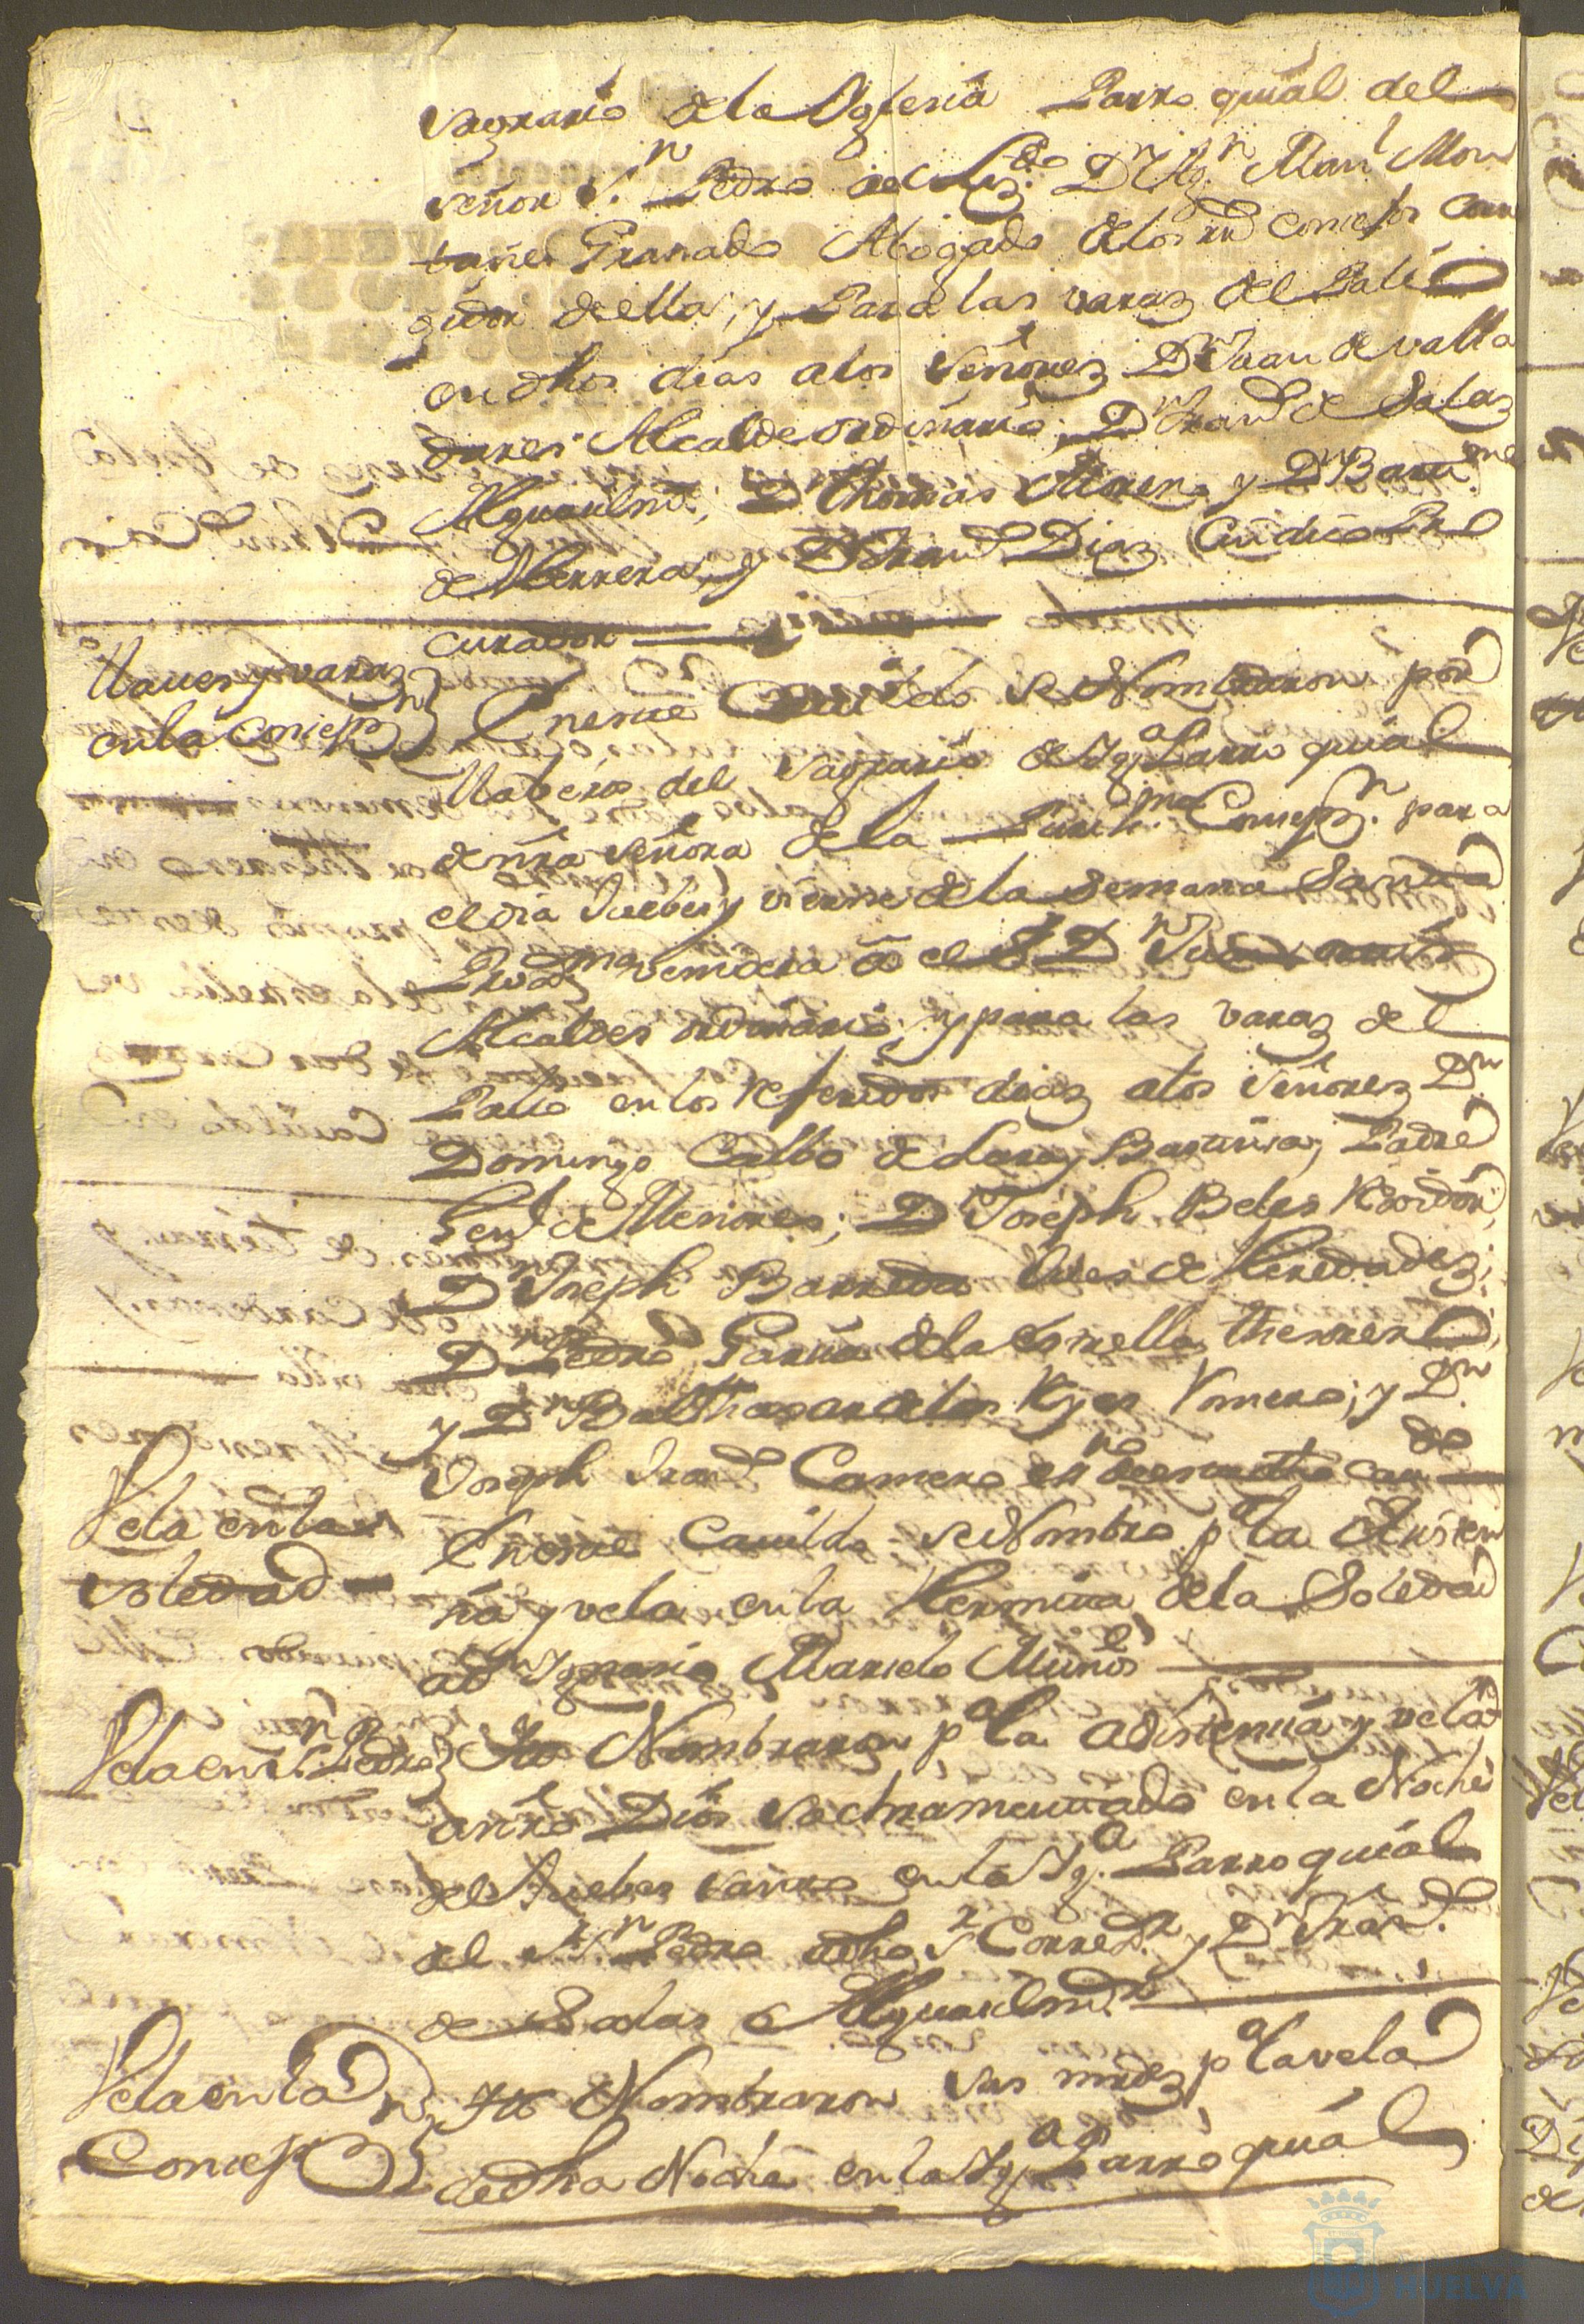 Sagrario de la Yglesia Parroquial del
señor Sn. Pedro al Lizdo. Dn Ygn Manl Mon
tañes Granado Abogado de los rrs consejos Corre
gidor de ella; y Para las varas del Palio
en dhos dias a los señores Dn Juan de valla
dares Alcalde ordinario; Dn Franco de Salaz
Alguacil mr; Dn Thomas Moreno y Dn Barme
de Herrera, y Dn Franco Diaz Cindico Pro
curador
Llaves y varas
en la Concepn
En este Cavildo se Nombraron por
llaberos del Sagrario de Yga Parroquial
de nra señora de la Purisma Concepn. para
el dia Juebes y viernes de la Semana Santa
Proxma venidera a el Sr Dn Juan
Alcaldes ordinario; y para las varas del
Palio en los referidos dias a los señores Dn
Domingo Calbo de Lara y Bastista, Padre
Genl de Menores; Dn Joseph Beles Rordon;
Dn Joseph Barreda Jues de Heredades;
Dn Pedro Garcia de la Estrella thesorero;
y Dn Balthasar de los Reyes Romero; y Dn
Joseph Franco Camero esno de este cavdo
Vela en la
soledad
En este Cavildo se Nombro pa la Asisten
cia y vela en la Hermita de la Soledad
a Dn Ygnacio Marselo Muños
Vela en Sn. Pedro
Yto Nombraron pa la asistencia y vela
a nro Dios Sachramentado en la Noche
del Juebes santo en la Yga. Parroquial
del Sr Sn Pedro a dho Sr Corregr y Dn Franco.
de Salas Alguacil mr
Vela en la
Concepn
Yto Nombraron sus mrdes pa la vela
de dha Noche en la Yga Parroquial
HUELVA